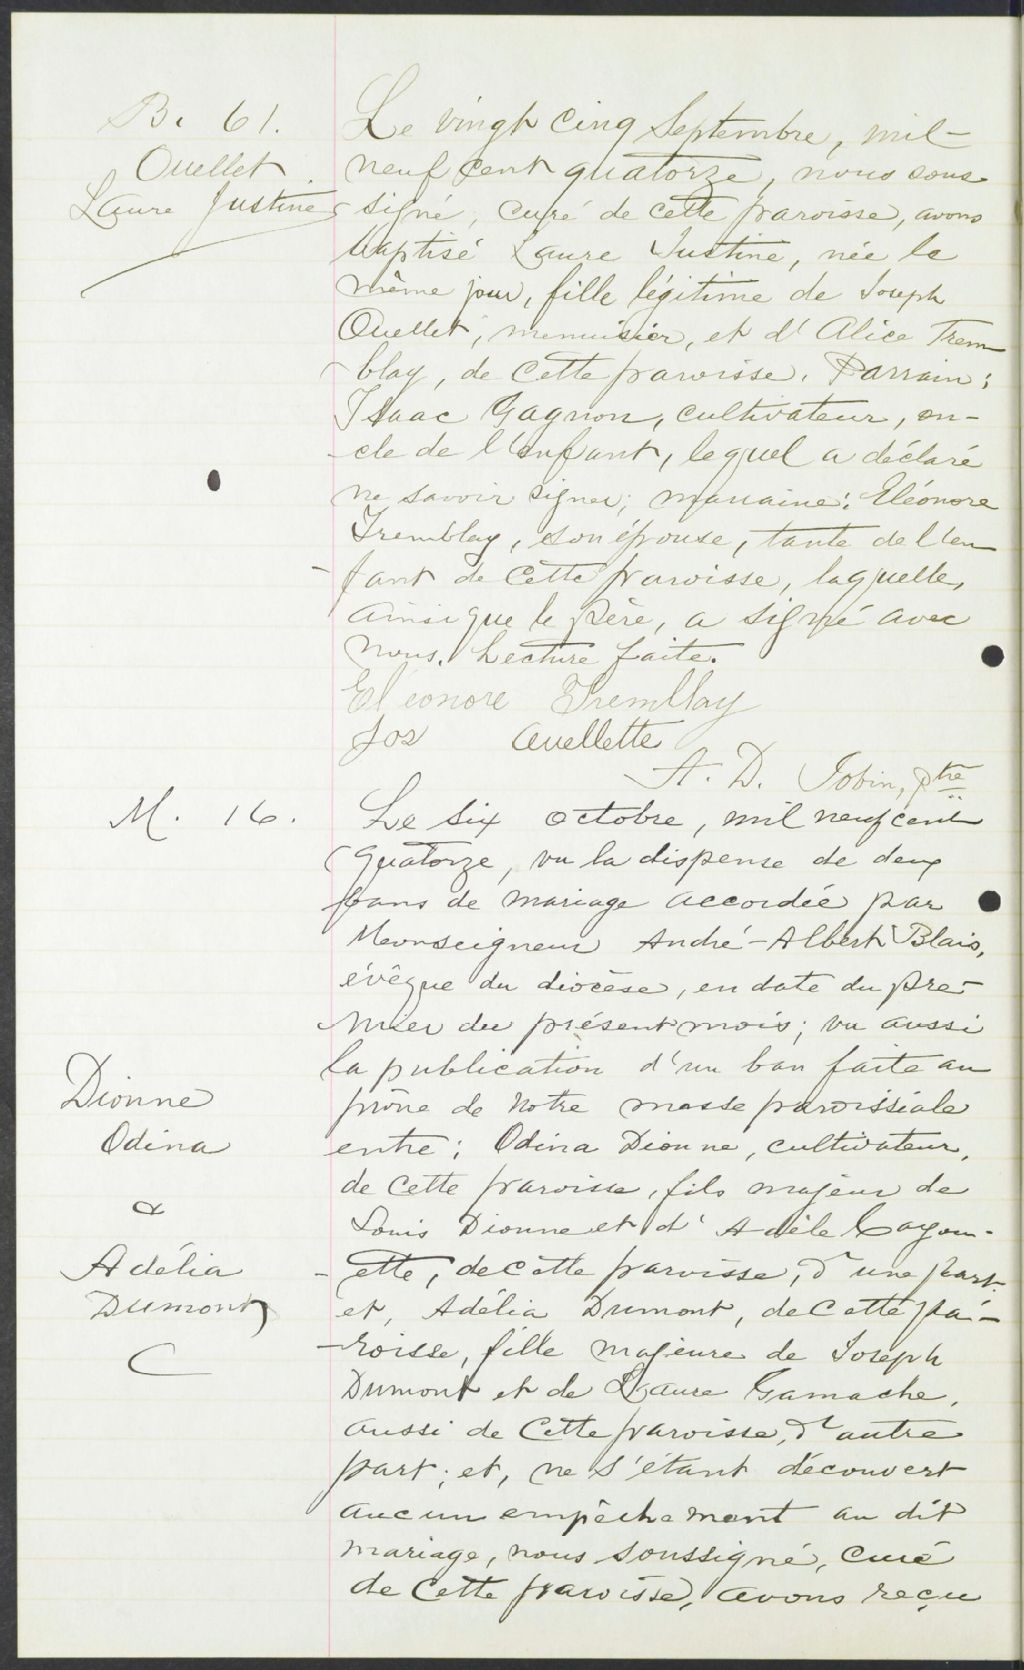 B. 61.
Ouellet
Laure Justine
Le vingt cinq Septembre, mil
neuf cent quatorze, nous sous
signé, curé de cette paroisse, avons
baptisé Laure Justine, née le
même jour, fille légitime de Joseph
Ouellet, menuisier, et d'Alice Trem
-blay, de cette paroisse. Parrain:
Isaac Gagnon, cultivateur, on-
-cle de l'enfant, lequel a déclaré
ne savoir signer; marraine: Eléonore
Tremblay, son épouse, tante de l'en
-fant de cette paroisse, laquelle,
ainsi que le père, a signé avec
nous. Lecture faite.
Eléonore Tremblay
Jos Ouellette
A. D. Jobin, ptre
M. 16.
Dionne
Odina
&
Adélia
Dumont
C
Le six octobre, mil neuf cent
quatorze, vu la dispense de deux
bans de mariage accordée par
Monseigneur André-Albert Blais,
évêque du diocèse, en date du pre-
mier du présent mois; vu aussi
la publication d'un ban faite au
prône de notre messe paroissiale
entre: Odina Dionne, cultivateur,
de cette paroisse, fils majeur de
Louis Dionne et d'Adèle Cayou-
-ette, de cette paroisse, d'une part.
et, Adélia Dumont, de cette pa-
-roisse, fille majeure de Joseph
Dumont et de Laure Gamache,
aussi de cette paroisse, d'autre
part; et, ne s'étant découvert
aucun empêchement au dit
mariage, nous soussigné, curé
de cette paroisse, avons reçu